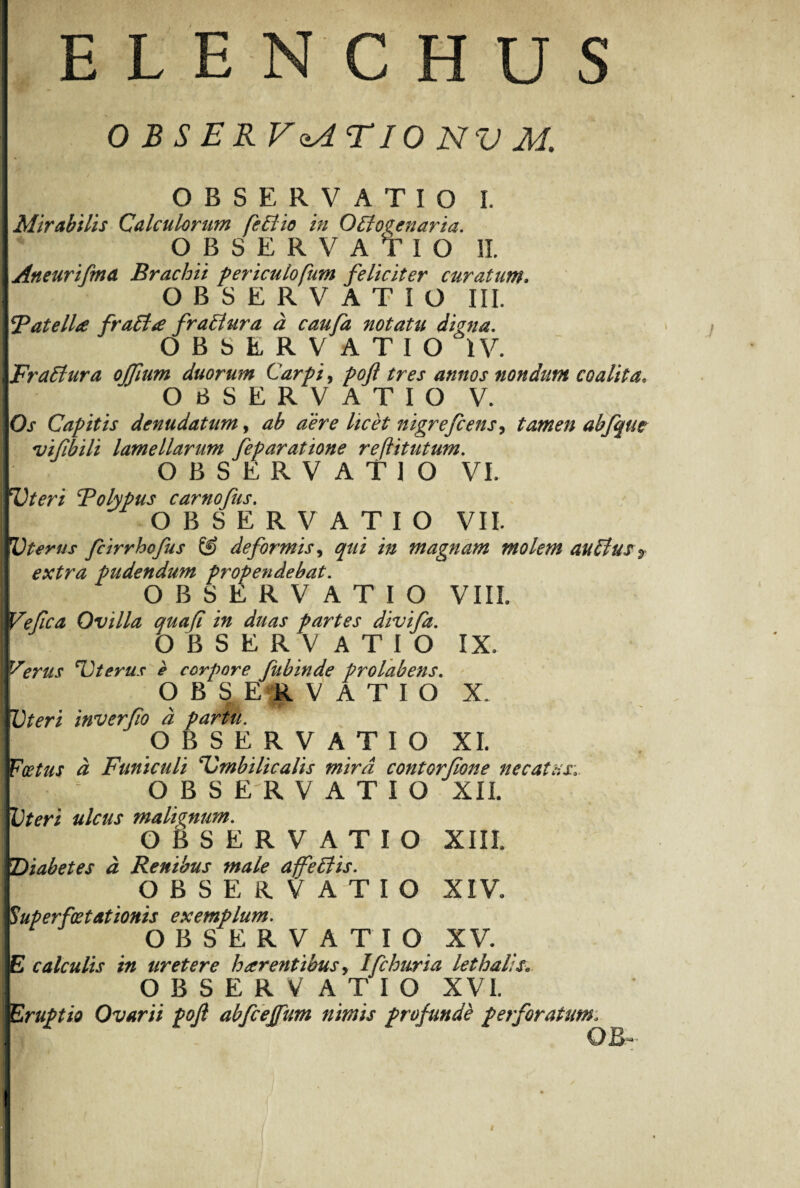 ELENCHUS
OBSERVATIONVM.
OBSERVATIO I.
Mirabilis Calculorum ſectio in Octogenaria.
OBSERVATIO II.
Aneuriſma Brachii periculoſum feliciter curatum.
OBSERVATIO III.
Patellæ fractæ fractura à cauſa notatu digna.
OBSERVATIO IV.
Fractura oſſium duorum Carpi, poſt tres annos nondum coalita.
OBSERVATIO V.
Os Capitis denudatum, ab aëre licèt nigreſcens, tamen abſque
viſibili lamellarum ſeparatione reſtitutum.
OBSERVATIO VI.
Vteri Polypus carnoſus.
OBSERVATIO VII.
Vterus ſcirrhoſus & deformis, qui in magnam molem auctus,
extra pudendum propendebat.
OBSERVATIO VIII.
Veſica Ovilla quaſi in duas partes diviſa.
OBSERVATIO IX.
Verus Vterus è corpore ſubinde prolabens.
OBSERVATIO X.
Vteri inverſio à partu.
OBSERVATIO XI.
Fœtus à Funiculi Vmbilicalis mirâ contorſione necatus.
OBSERVATIO XII.
Vteri ulcus malignum.
OBSERVATIO XIII.
Diabetes à Renibus male affectis.
OBSERVATIO XIV.
Superfœtationis exemplum.
OBSERVATIO XV.
E calculis in uretere hærentibus, Iſchuria lethalis.
OBSERVATIO XVI.
Eruptio Ovarii poſt abſceſſum nimis profundè perforatum.
OB-